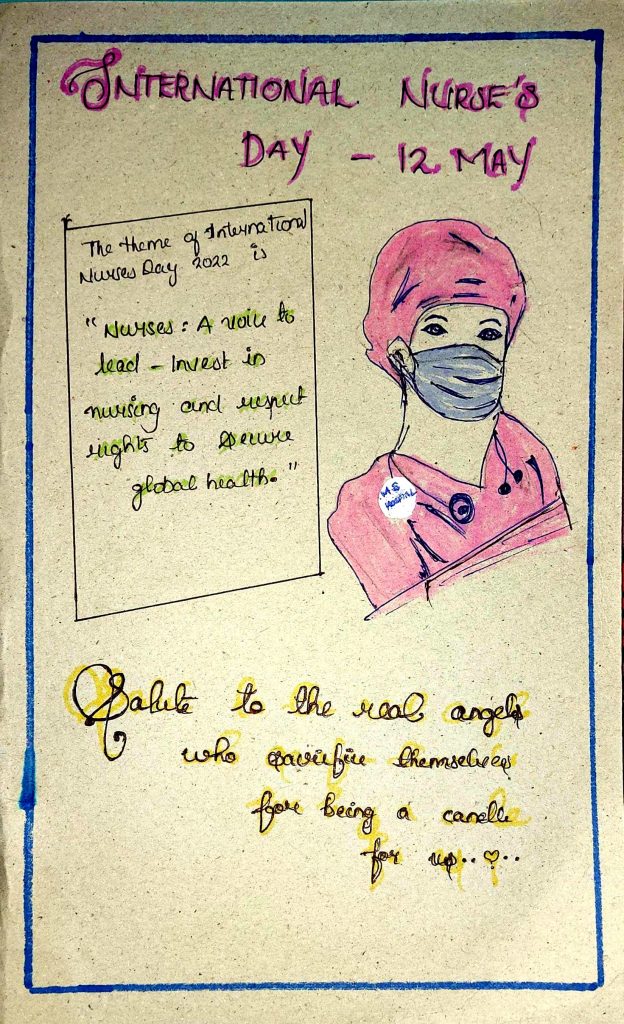 INTERNATIONAL NURSE'S
DAY - 12 MAY
The theme of International
Nurses Day 2022 is
"Nurses: A voice to
lead - Invest in
nursing and respect
rights to secure
global health."
MS
HOSPITAL
Salute to the real angels
who sacrifice themselves
for being a candle
for us..♡..